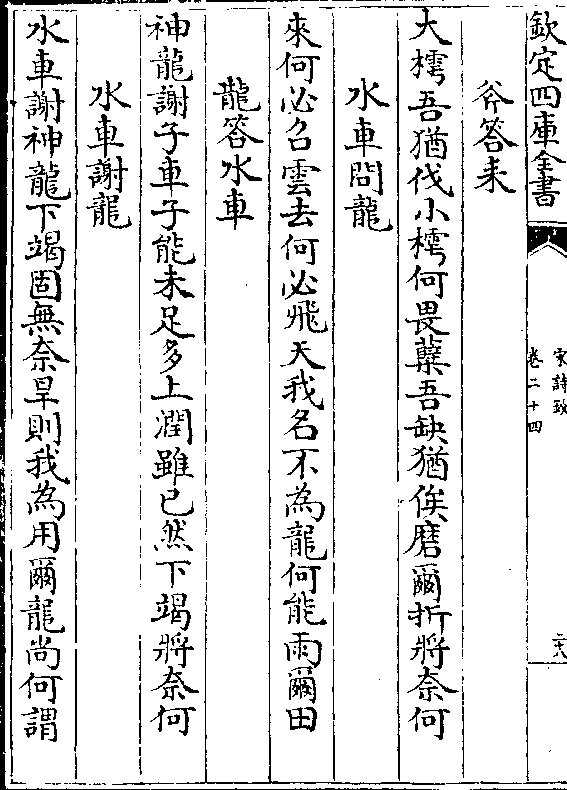 欽定四庫全書
宋詩鈔
卷二十四
二十八
斧答耒
大樗吾猶伐小樗何畏蘖吾缺猶俟磨爾折將奈何
水車問龍
來何必召雲去何必飛天我名不為龍何能雨爾田
龍答水車
神龍謝子車子能未足多上潤雖已然下竭將奈何
水車謝龍
水車謝神龍下竭固無奈旱則我為用爾龍尚何謂